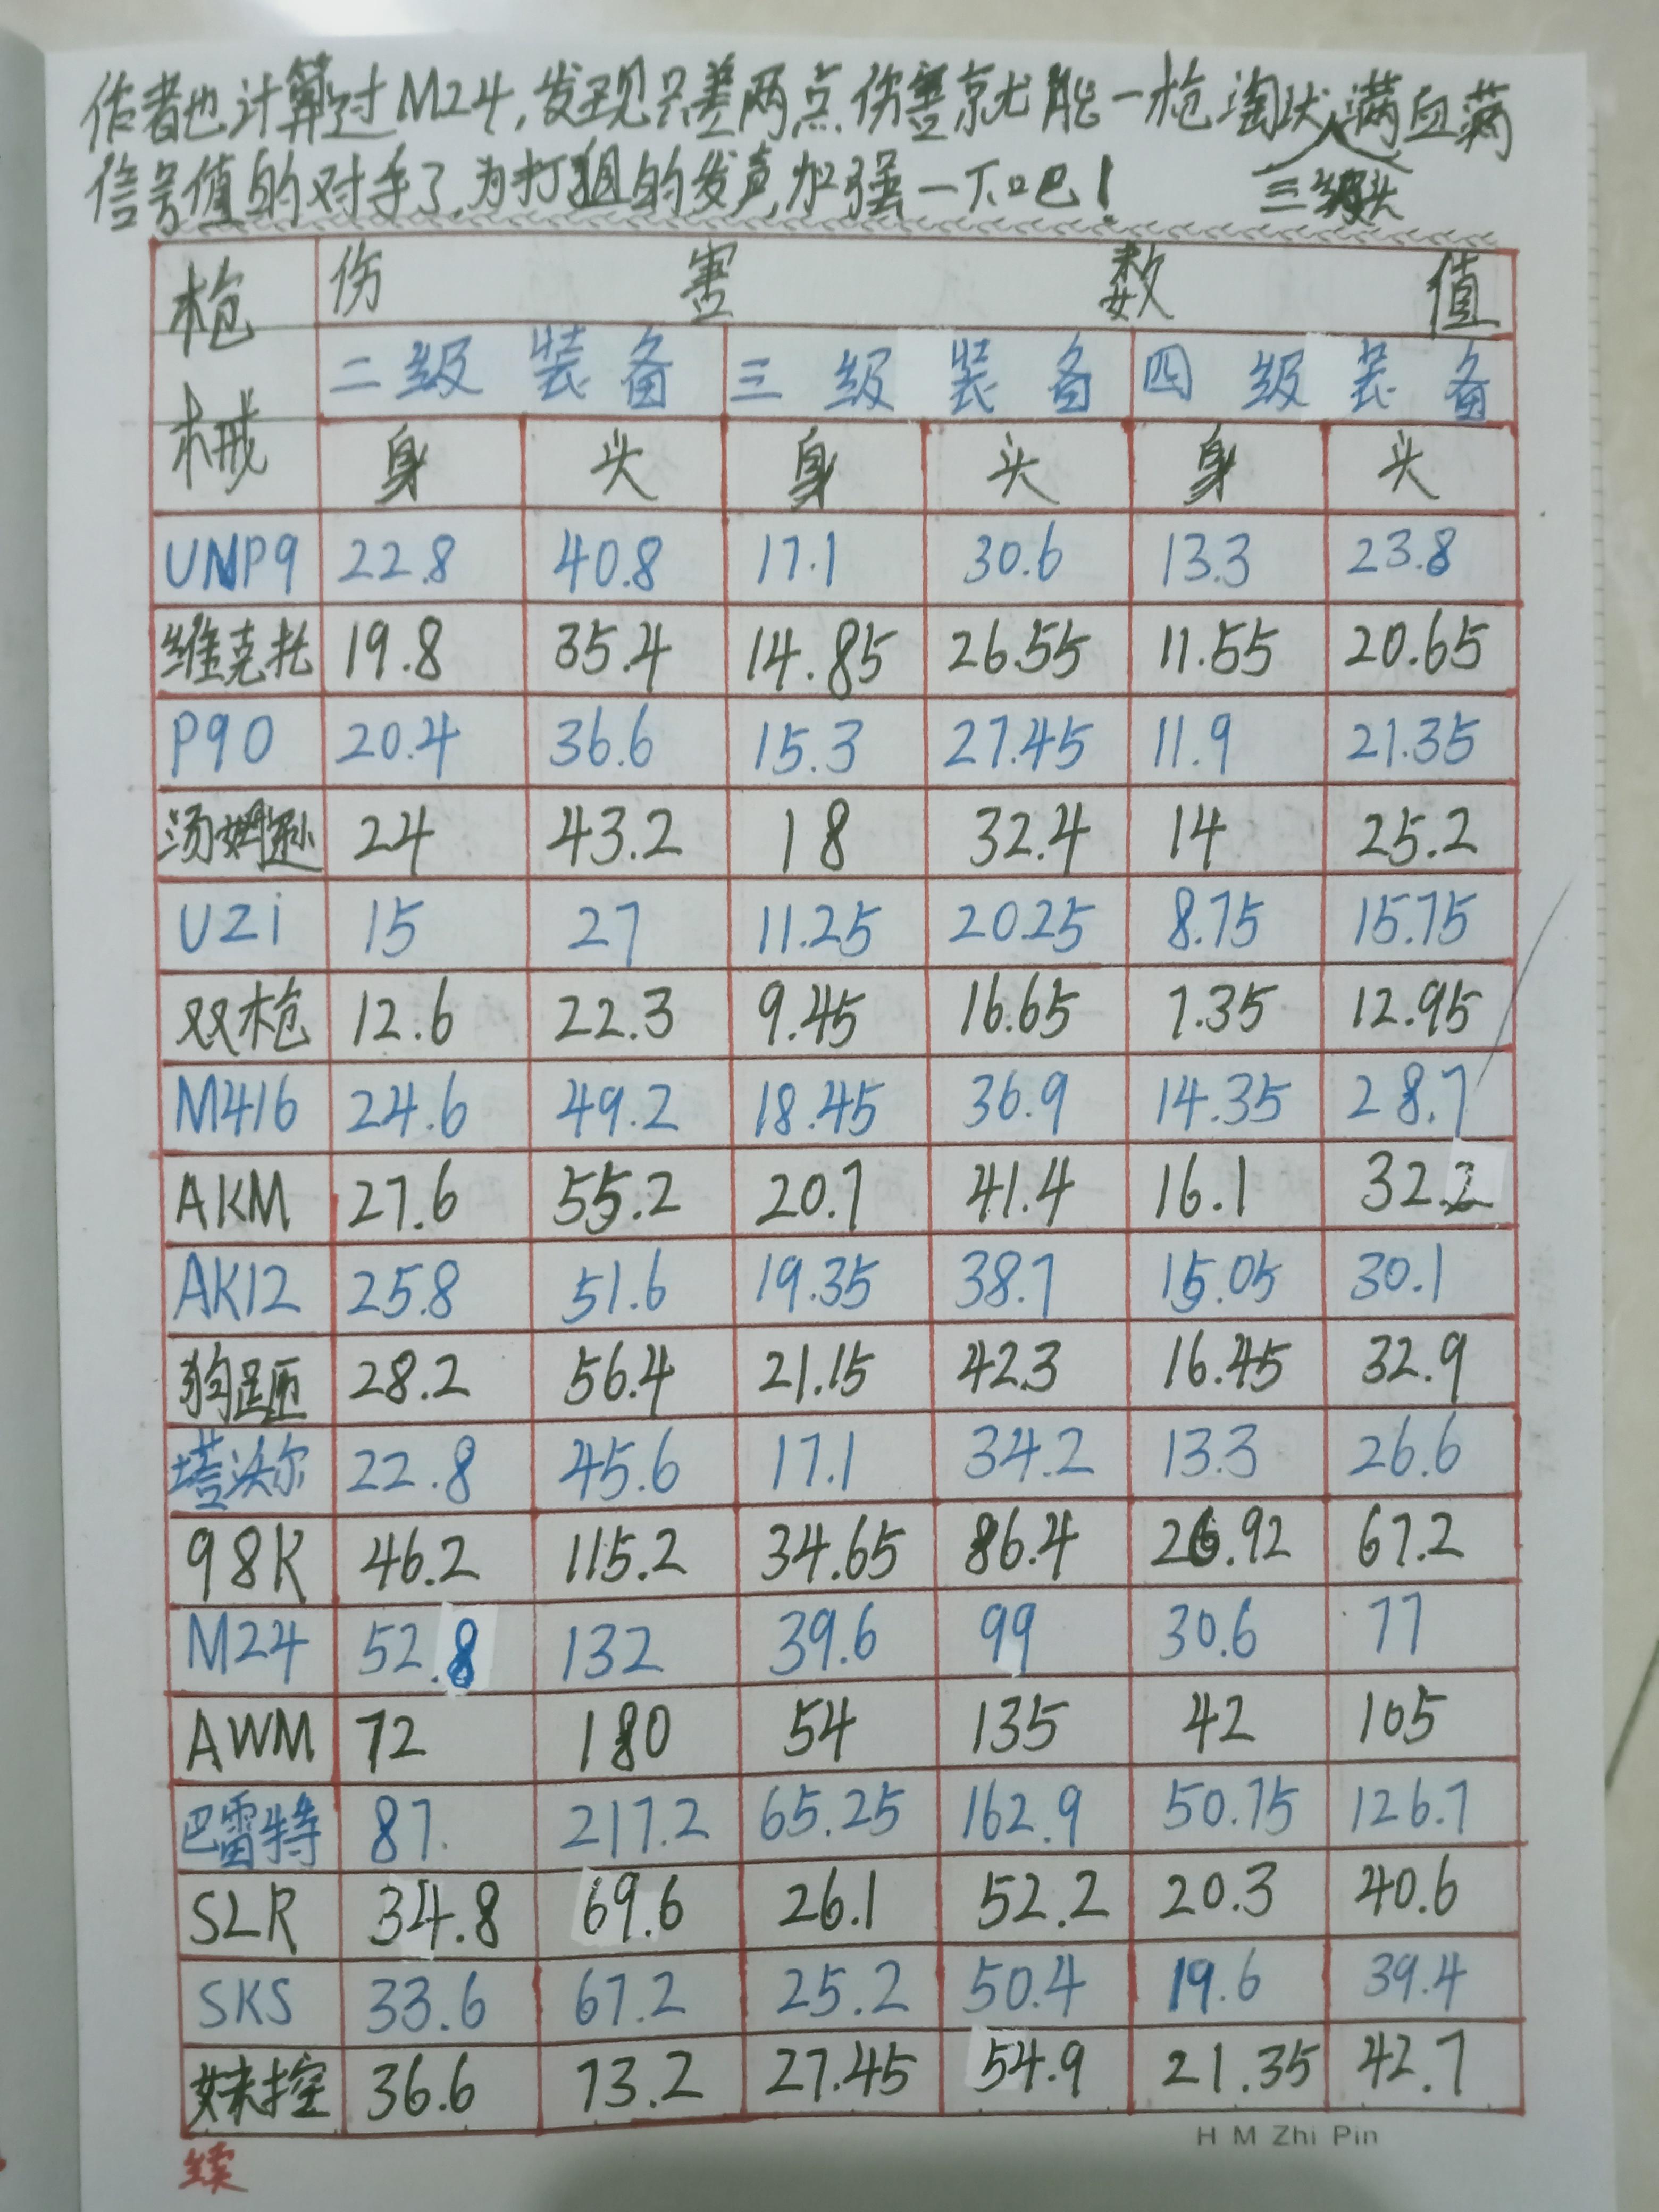 作者也计算过M24,发现只差两点伤害就能一枪淘汰满血满
三级头
信号值的对手了,为打狙的发声,加强一下吧!
枪械 伤害数值
二级装备 三级装备 四级装备
身 头 身 头 身 头
UMP9 22.8 40.8 17.1 30.6 13.3 23.8
维克托 19.8 35.4 14.85 26.55 11.55 20.65
P90 20.4 36.6 15.3 27.45 11.9 21.35
汤姆逊 24 43.2 18 32.4 14 25.2
UZi 15 27 11.25 20.25 8.75 15.75
双枪 12.6 22.3 9.45 16.65 7.35 12.95
M416 24.6 49.2 18.45 36.9 14.35 28.7
AKM 27.6 55.2 20.7 41.4 16.1 32.2
AK12 25.8 51.6 19.35 38.7 15.05 30.1
狗砸 28.2 56.4 21.15 42.3 16.45 32.9
塔沃尔 22.8 45.6 17.1 34.2 13.3 26.6
98K 46.2 115.2 34.65 86.4 26.92 67.2
M24 52.8 132 39.6 99 30.6 77
AWM 72 180 54 135 42 105
巴雷特 87. 217.2 65.25 162.9 50.75 126.7
SLR 34.8 69.6 26.1 52.2 20.3 40.6
SKS 33.6 67.2 25.2 50.4 19.6 39.4
妹控 36.6 73.2 27.45 54.9 21.35 42.7
H M Zhi Pin
续